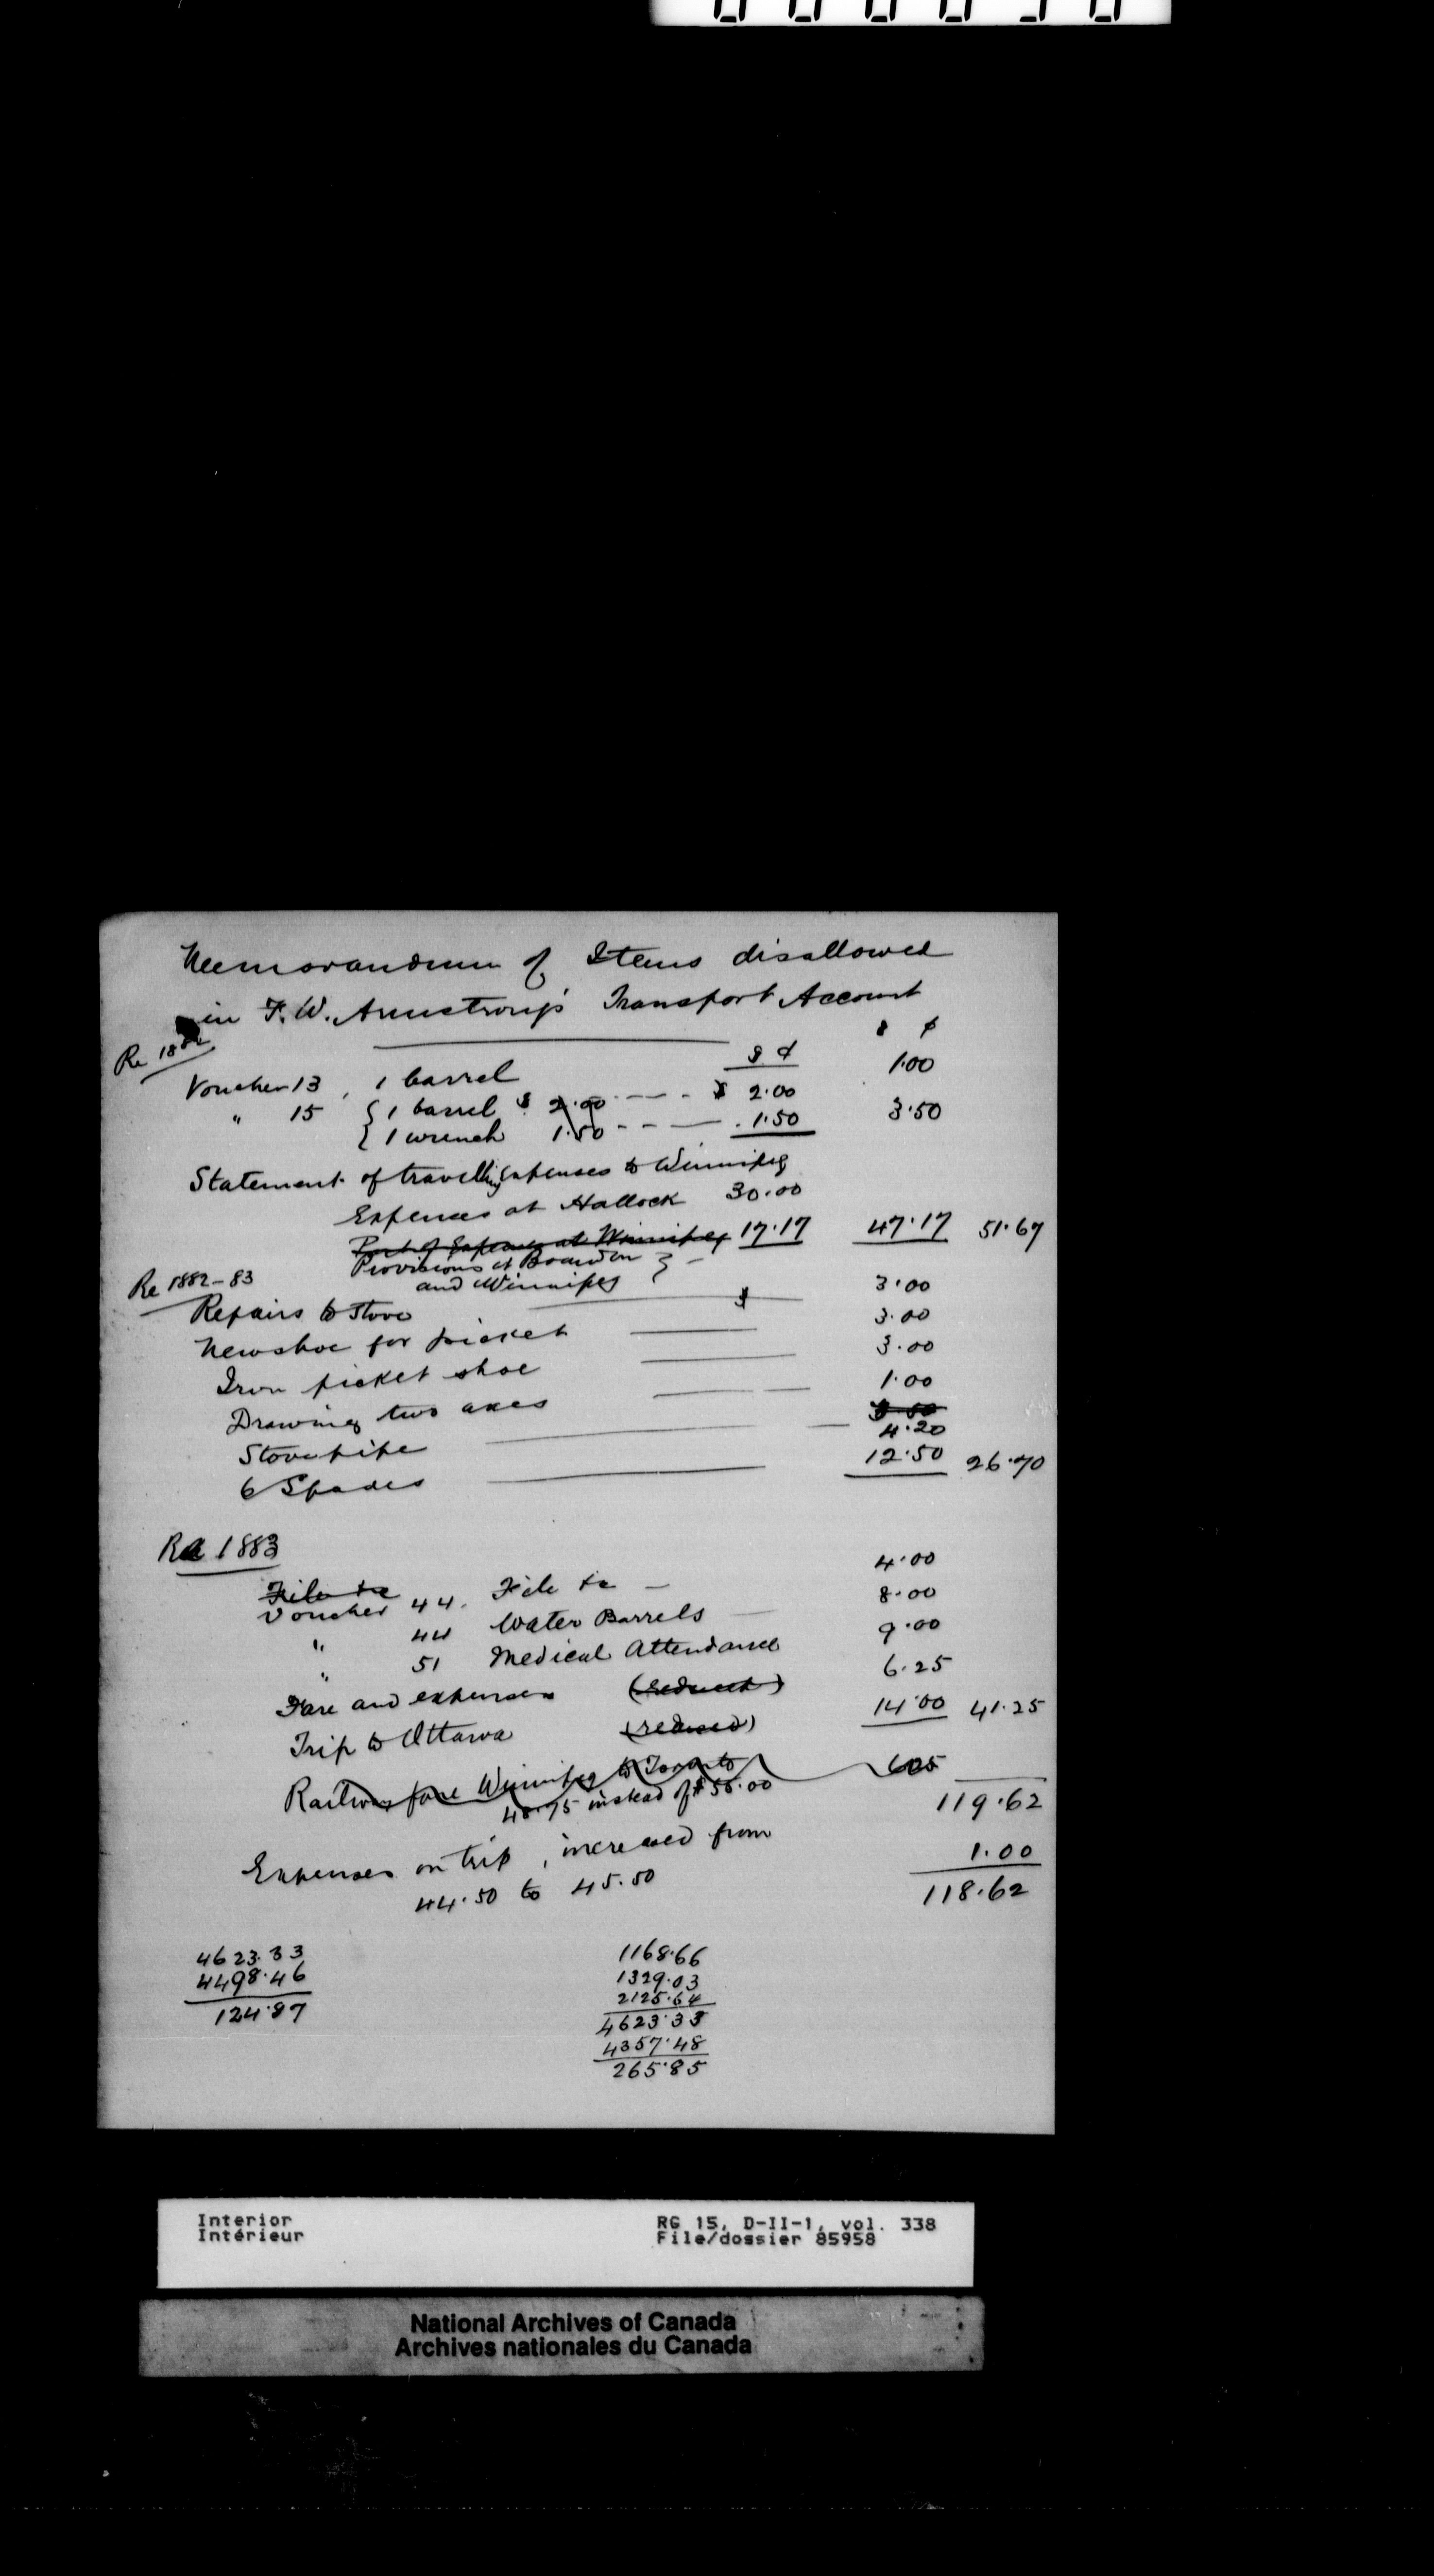 Memorandum of Items disallowed
in F. W. Armstrong's Transport Account
$ ¢
Re 1882
$ ¢
Voucher 13, 1 barrel 1.00
" 15 { 1 barrel $ 2.00 - - - $ 2.00
{ 1 wrench 1.50 - - - 1.50 3.50
Statement of travelling expenses to Winnipeg
Expenses at Hallock 30.00
Part of Expenses at Winnipeg 17.17 47.17 51.67
Provisions at Brandon } -
and Winnipeg
Re 1882-83
Repairs to Stove $ 3.00
New shoe for picket 3.00
Iron picket shoe 3.00
Drawing two axes 1.00
Stovepipe 4.20
6 Spades 12.50 26.70
Re 1883
File &c
Voucher 44. File &c - 4.00
" 44 Water Barrels 8.00
" 51 Medical Attendance 9.00
Fare and expenses 6.25
Trip to Ottawa (reduced) 14.00 41.25
Railway fare Winnipeg to Toronto 605
48.75 instead of $55.00 119.62
Expenses on trip, increased from 1.00
44.50 to 45.50 118.62
4623.33
4498.46
124.87
1168.66
1329.03
2125.64
4623.33
4357.48
265.85
Interior
Intérieur
RG 15, D-II-1, vol. 338
File/dossier 85958
National Archives of Canada
Archives nationales du Canada